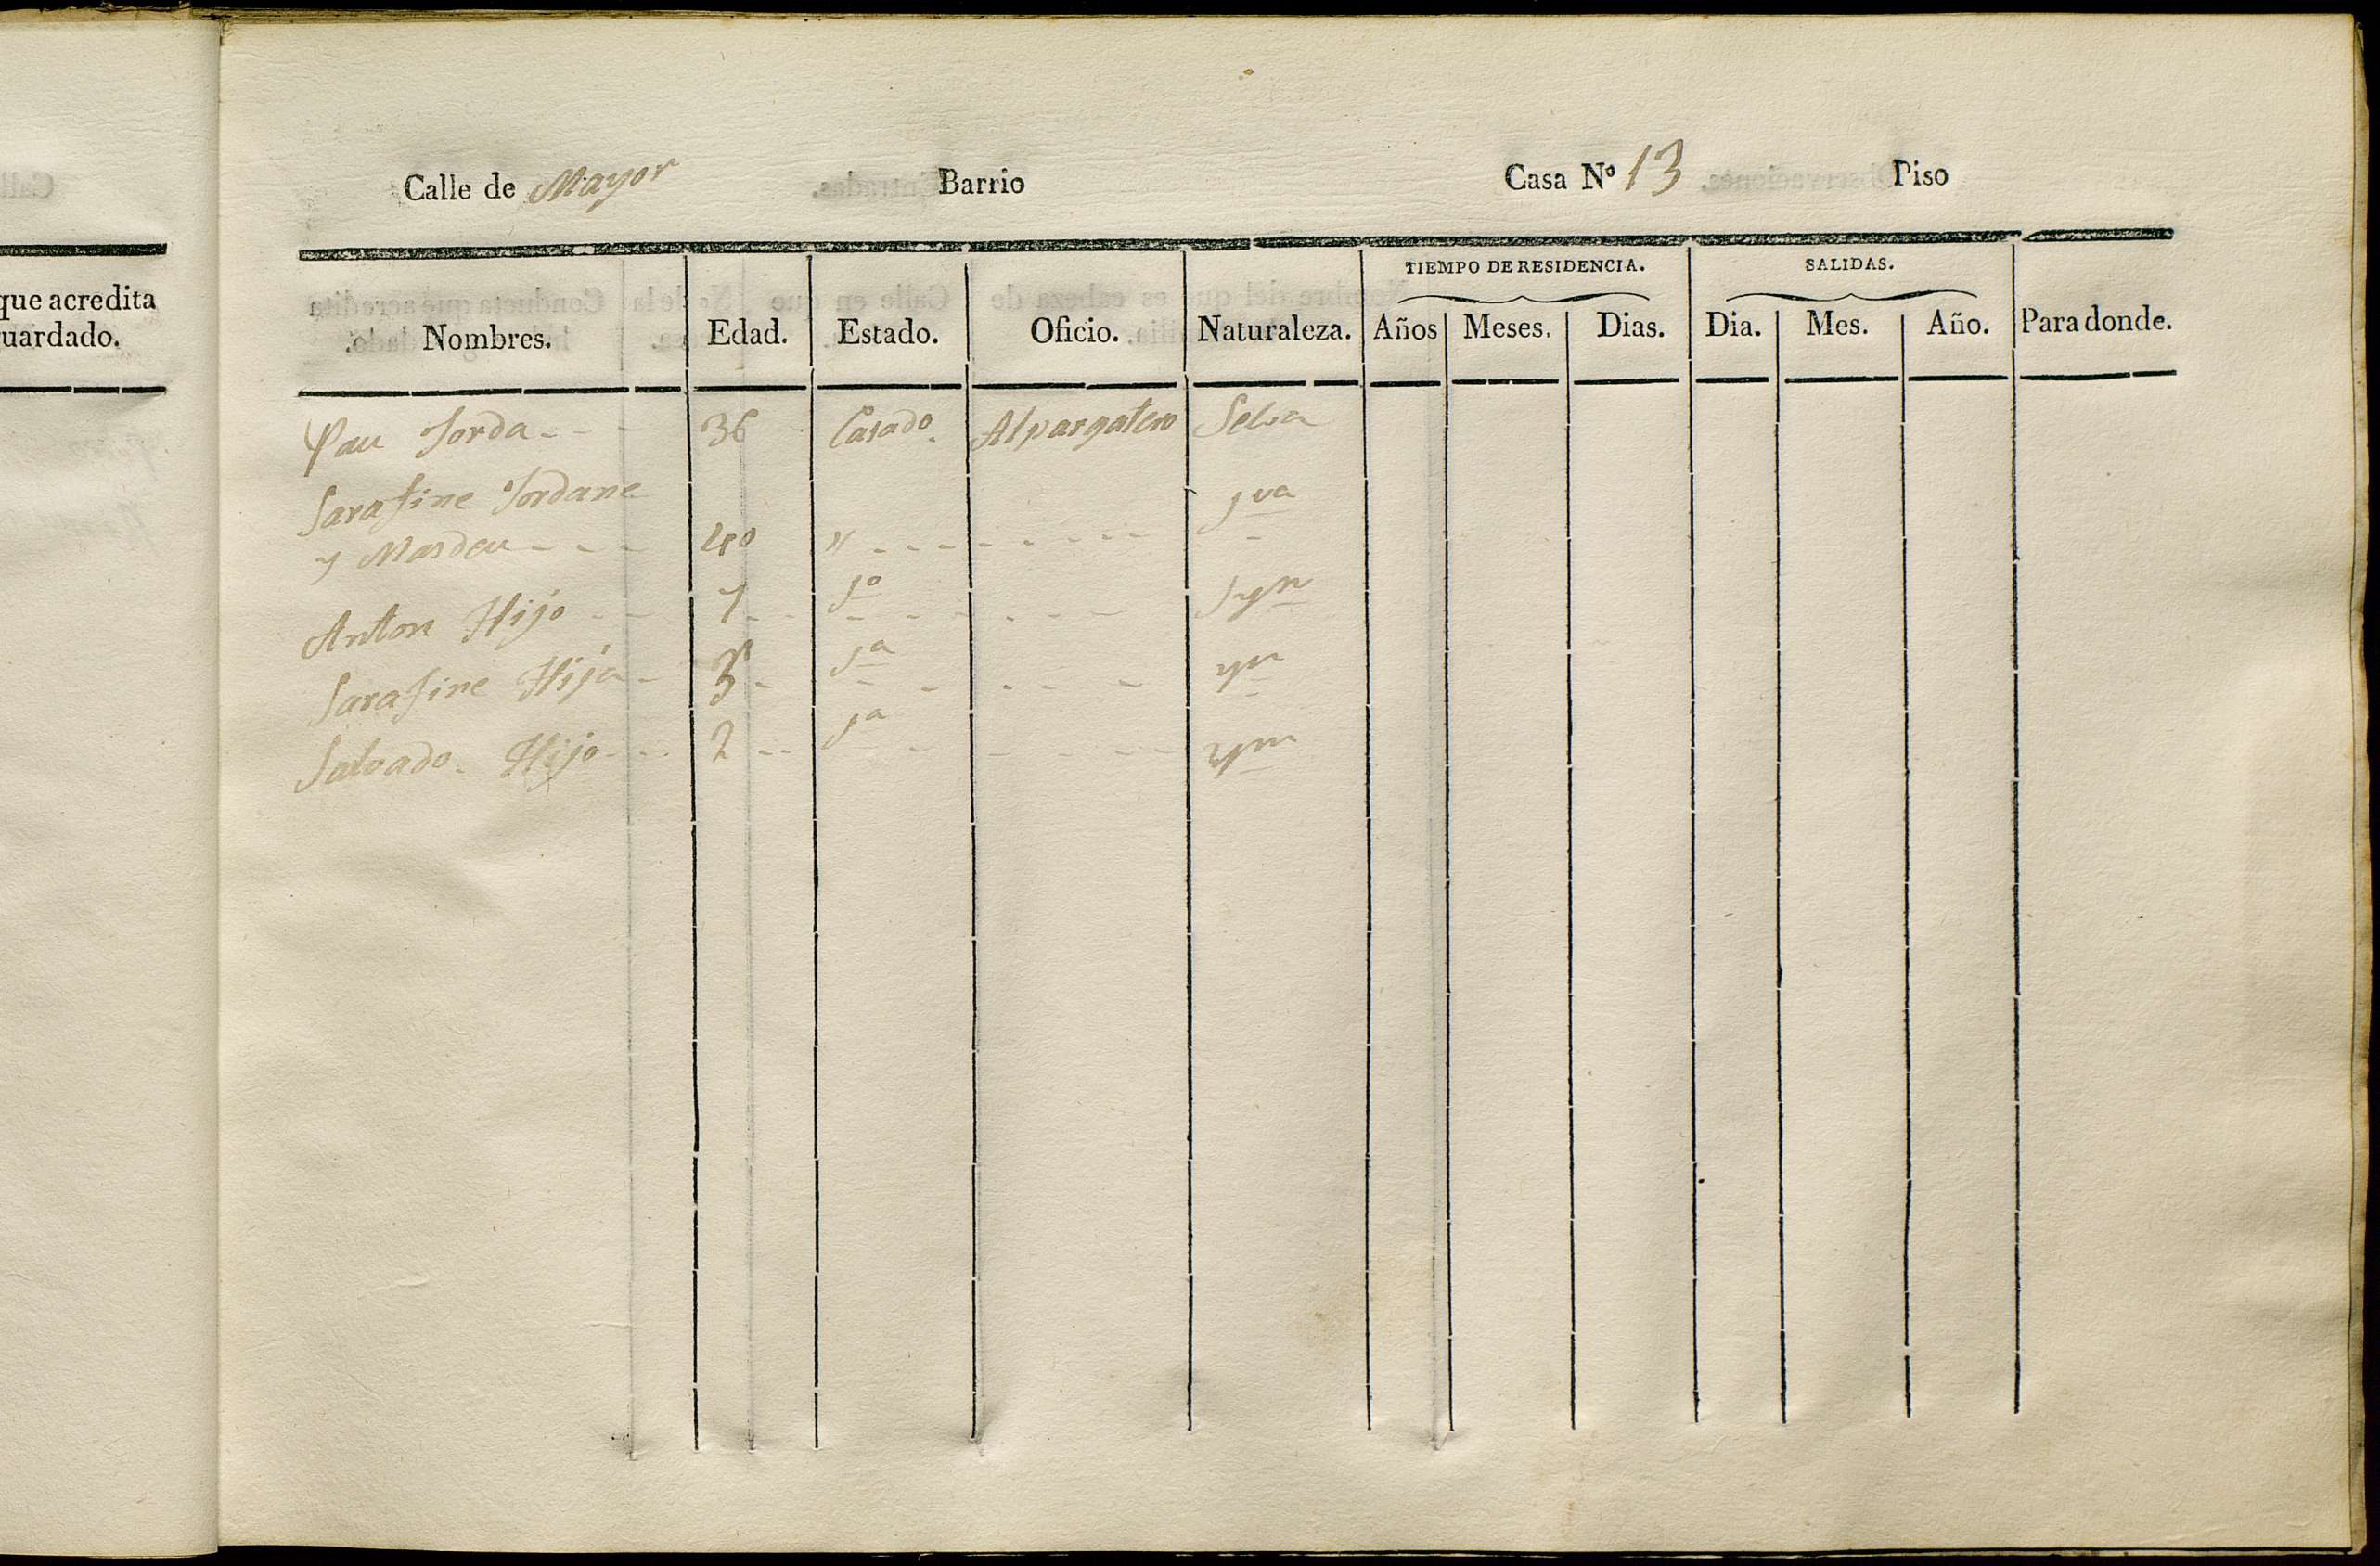 que acredita
uardado.
Calle de Mayor Barrio Casa Nº 13 Piso
TIEMPO DE RESIDENCIA. SALIDAS.
Nombres. Edad. Estado. Oficio. Naturaleza. Años Meses. Dias. Dia. Mes. Año. Para donde.
Pau Jorda - - - 36 Casado. Alpargatero Selva
Sarafine Jordane
y Masdeu - - - 40 "
Anton Hijo - - 7 sº
Sarafine Hija - 3 sª
Salvado. Hijo - - - 2 sª